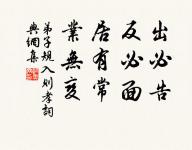 出必告
反必面
居有常
業無變
弟子規入則孝詞
興網集